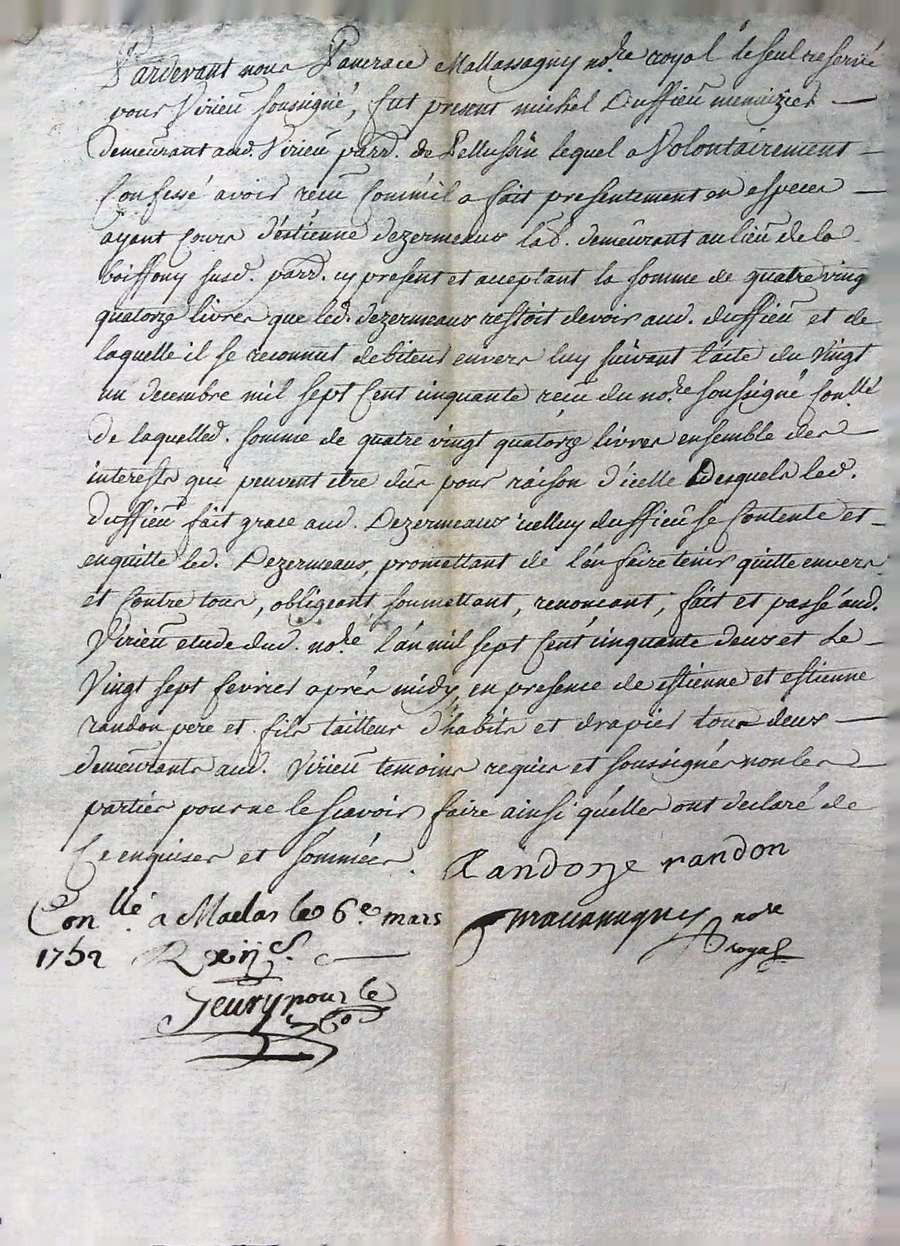 Pardevant nous Pancrace Mallassagny no.re royal le seul reservé
pour Virieu soussigné, fut present michel Duffieu menuizier
demeurant aud. Virieu parr. de Pellussin lequel a volontairement
Confessé avoir reçu Comm'il a fait presentement en especes
ayant Cours d'éstienne dezermeaux lab. demeurant au lieu de la
susd. parr. cy present et acceptant la somme de quatre ving
quatorze livres que led. dezermeaux restoit devoir aud. duffieu et de
laquelle il se reconnut debiteur envers luy suivant l'acte du vingt
un decembre mil sept Cent cinquante reçu du no.re soussigné Con.llé
de laquelled. somme de quatre vingt quatorze livres ensemble des
interests qui peuvent etre dus pour raison d'icelle Desquels led.
duffieu fait grace aud. Dezermeaux icelluy duffieu se Contente et
en quitte led. Dezermeaux, promettant de l'en faire tenir quitte envers
et Contre tous, obligeant soumettant, renonçant, fait et passé aud.
Virieu etude dud. no.re l'an mil sept Cent cinquante deux et le
Vingt sept fevrier aprés midy, en presence de estienne et estienne
randon pere et fils tailleur d'habits et drapier tous deux
demeurants aud. Virieu temoins requis et soussignés non les
parties pour ne le scavoir faire ainsi qu'elles ont declaré de
Ce enquises et sommées. Randon randon
Con.llé a Maclas le 6.e mars
1752 R xij s.
Mallassagny no.re
royal
Jeury pour le